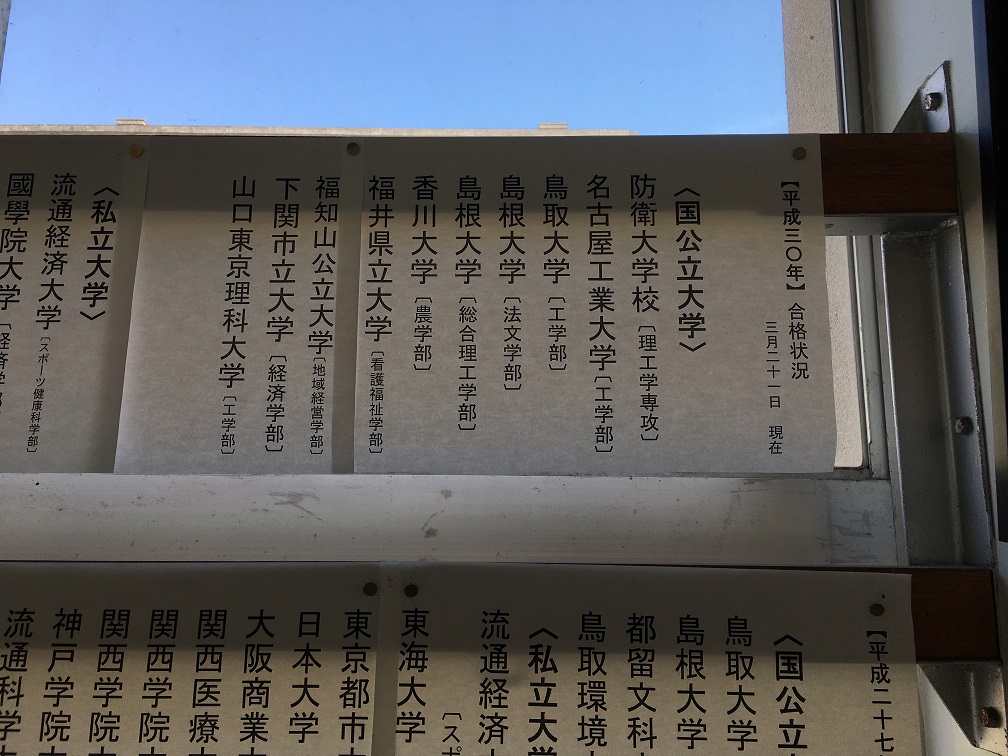 【平成三〇年】合格状況
三月二十一日　現在
〈国公立大学〉
防衛大学校〔理工学専攻〕
名古屋工業大学〔工学部〕
鳥取大学〔工学部〕
島根大学〔法文学部〕
島根大学〔総合理工学部〕
香川大学〔農学部〕
福井県立大学〔看護福祉学部〕
福知山公立大学〔地域経営学部〕
下関市立大学〔経済学部〕
山口東京理科大学〔工学部〕
〈私立大学〉
流通経済大学〔スポーツ健康科学部〕
國學院大学〔経済学部
【平成二十七
〈国公立
鳥取大学
島根大学
都留文科
鳥取環境
〈私立大学
流通経済
〔スポ
東海大学
東京都市
日本大学
大阪商業
関西医療
関西学院
関西学院
神戸学院
流通科学